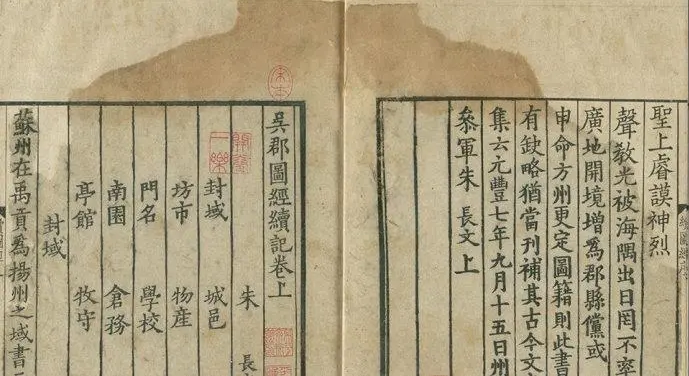 聖上睿謨神烈
聲敎光被海隅出日罔不率
廣地開境增爲郡縣儻或
申命方州更定圖籍則此書
有缺略猶當刊補其古今文
集云元豐七年九月十五日州
參軍朱 長文 上
吳郡圖經續記卷上
朱 長
封域 城邑
坊市 物產
門名 學校
南園 倉務
亭館 牧守
封域
蘇州在禹貢爲揚州之域書